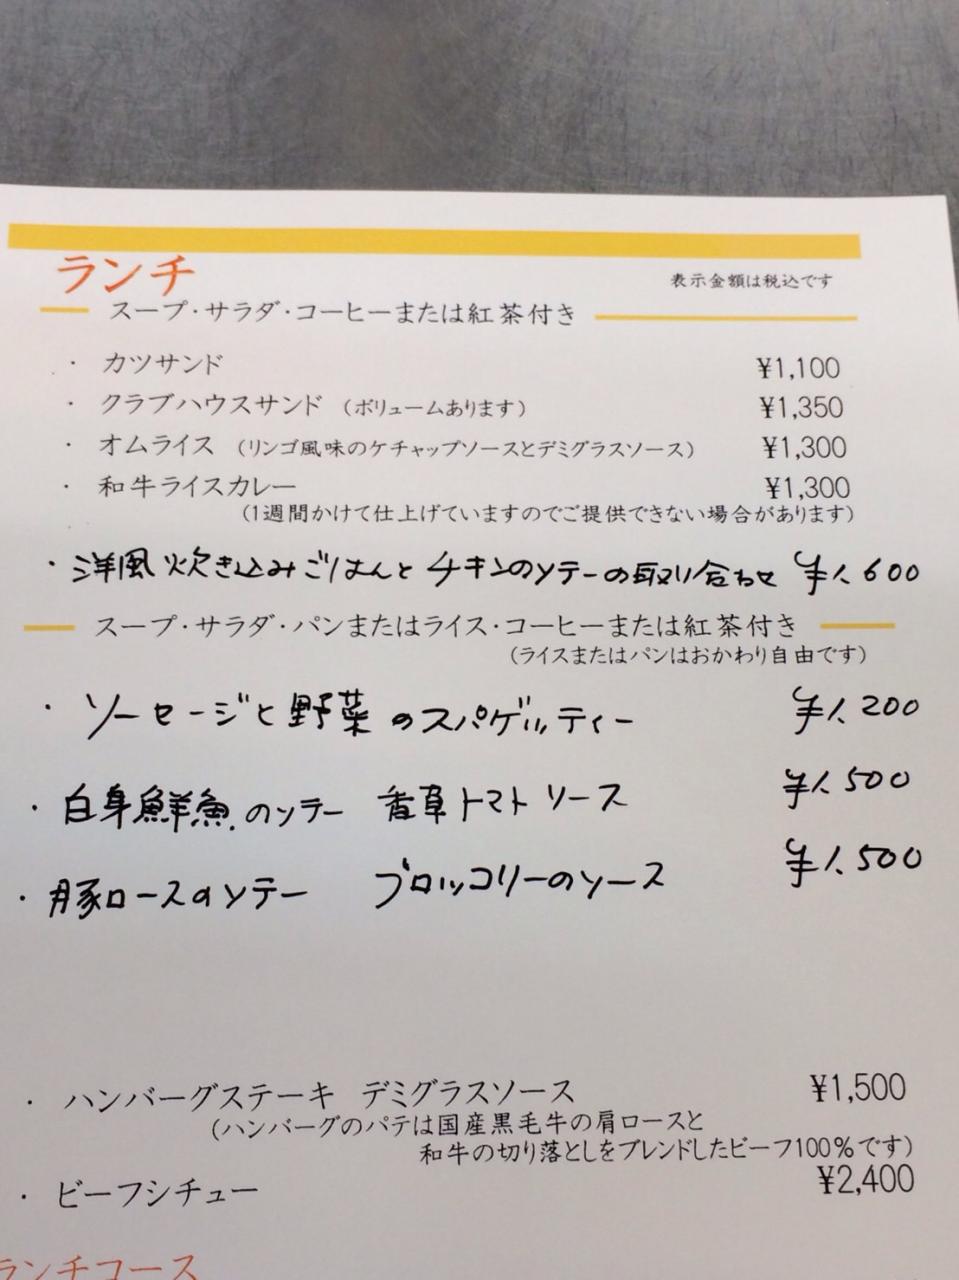 ランチ
表示金額は税込です
スープ・サラダ・コーヒーまたは紅茶付き
・ カツサンド ¥1,100
・ クラブハウスサンド （ボリュームあります） ¥1,350
・ オムライス （リンゴ風味のケチャップソースとデミグラスソース） ¥1,300
・ 和牛ライスカレー ¥1,300
（1週間かけて仕上げていますのでご提供できない場合があります）
・洋風炊き込みごはんとチキンのソテーの取り合わせ ¥1,600
スープ・サラダ・パンまたはライス・コーヒーまたは紅茶付き
（ライスまたはパンはおかわり自由です）
・ ソーセージと野菜のスパゲッティー ¥1,200
・ 白身鮮魚のソテー 香草トマトソース ¥1,500
・ 豚ロースのソテー ブロッコリーのソース ¥1,500
・ ハンバーグステーキ デミグラスソース ¥1,500
（ハンバーグのパテは国産黒毛牛の肩ロースと
和牛の切り落としをブレンドしたビーフ100％です）
・ ビーフシチュー ¥2,400
ランチコース